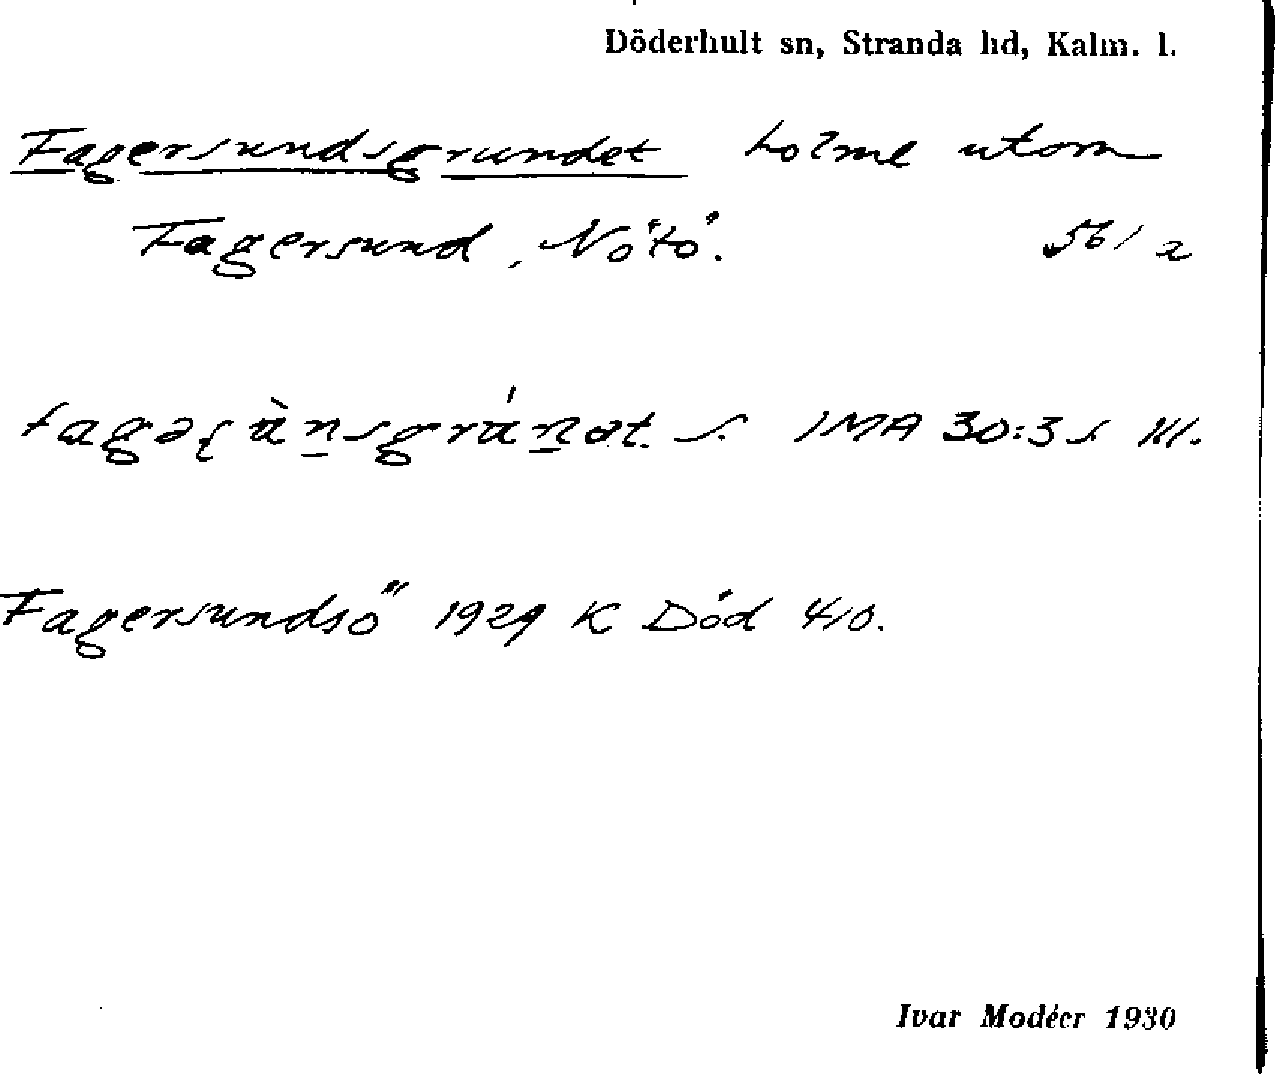 Döderhult sn, Stranda hd, Kalm. l.
Fagersundsgrundet holme utom
Fagersund, Nötö. 561 a
IMA 30:3 s 111.
Fagersundsö 1929 K Död 410.
Ivar Modéer 1930